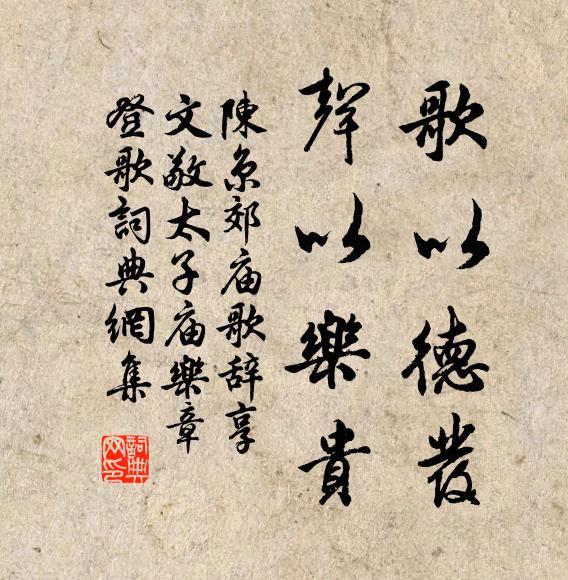 歌以德發
聲以樂貴
陳京郊庙歌辞享
文敬太子庙樂章
登歌詞典網集
詞典网印